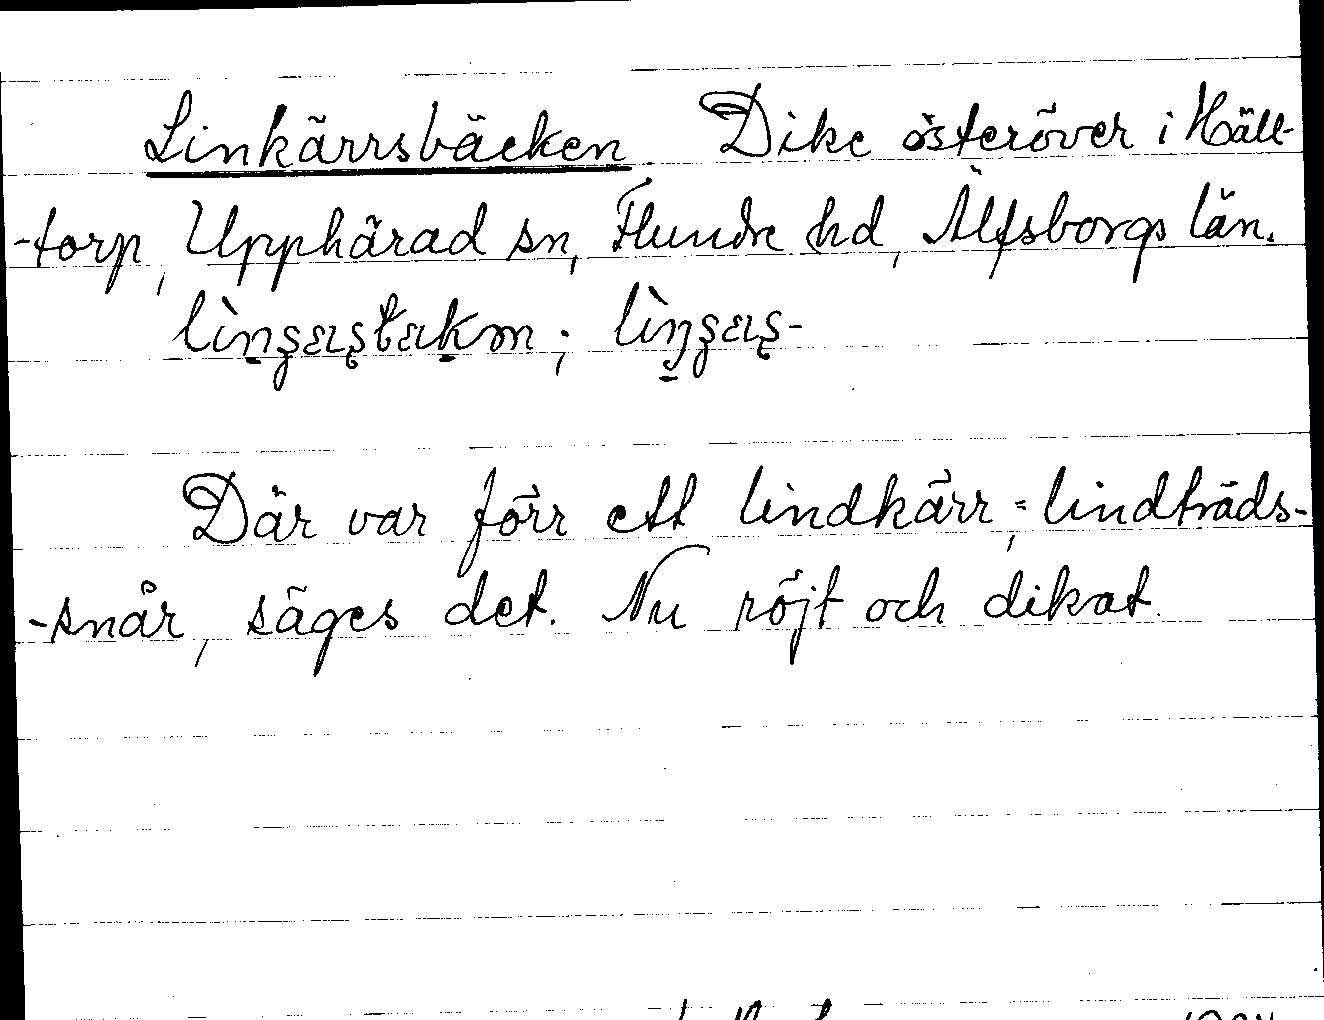 Linkärrsbäcken. Dike österöver i Häll-
-torp, Upphärad sn, Flundre hd, Älfsborgs län.
Där var förr ett lindkärr, = lindträds-
-snår, säges det. Nu röjt och dikat.